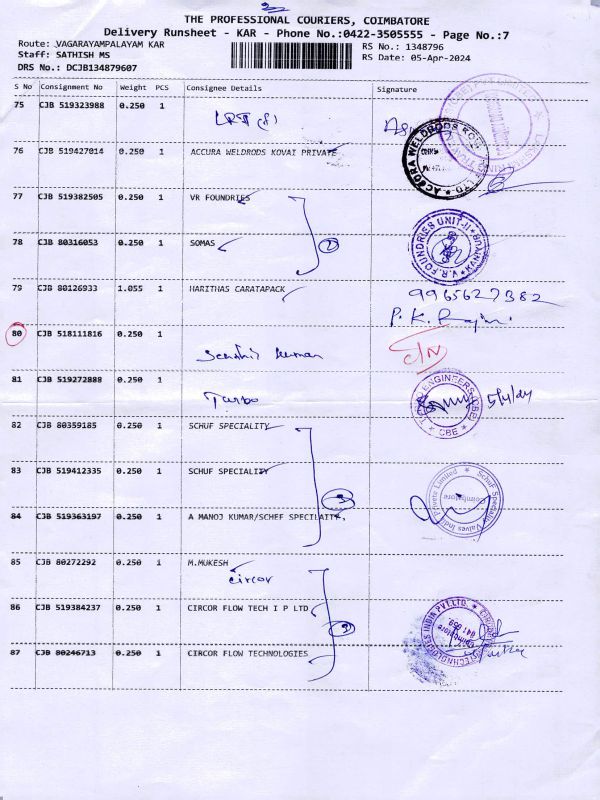 THE PROFESSIONAL COURIERS, COIMBATORE
Delivery Runsheet - KAR - Phone No.:0422-3505555 - Page No.:7
Route: VAGARAYAMPALAYAM KAR
RS No.: 1348796
Staff: SATHISH MS
RS Date: 05-Apr-2024
DRS No.: DCJB134879607
S No Consignment No Weight PCS Consignee Details Signature
75 CJB 519323988 0.250 1
76 CJB 519427014 0.250 1 ACCURA WELDRODS KOVAI PRIVATE
77 CJB 519382505 0.250 1 VR FOUNDRIES
78 CJB 80316053 0.250 1 SOMAS
V.R.FOUNDRIES UNIT-II
79 CJB 80126933 1.055 1 HARITHAS CARATAPACK
9965627382
P.K. Rajini
80 CJB 518111816 0.250 1
Senthil Kumar
81 CJB 519272888 0.250 1
Turbo
ENGINEERS (CBE)
* CBE *
5/4/24
82 CJB 80359185 0.250 1 SCHUF SPECIALITY
83 CJB 519412335 0.250 1 SCHUF SPECIALITY
Schuf Speciality Valves India Private Limited
Coimbatore
3
84 CJB 519363197 0.250 1 A MANOJ KUMAR/SCHEF SPECILAITY,
85 CJB 80272292 0.250 1 M.MUKESH
circor
86 CJB 519384237 0.250 1 CIRCOR FLOW TECH I P LTD
TECHNOLOGIES INDIA PVT.LTD.
Coimbatore
641 659.
87 CJB 80246713 0.250 1 CIRCOR FLOW TECHNOLOGIES